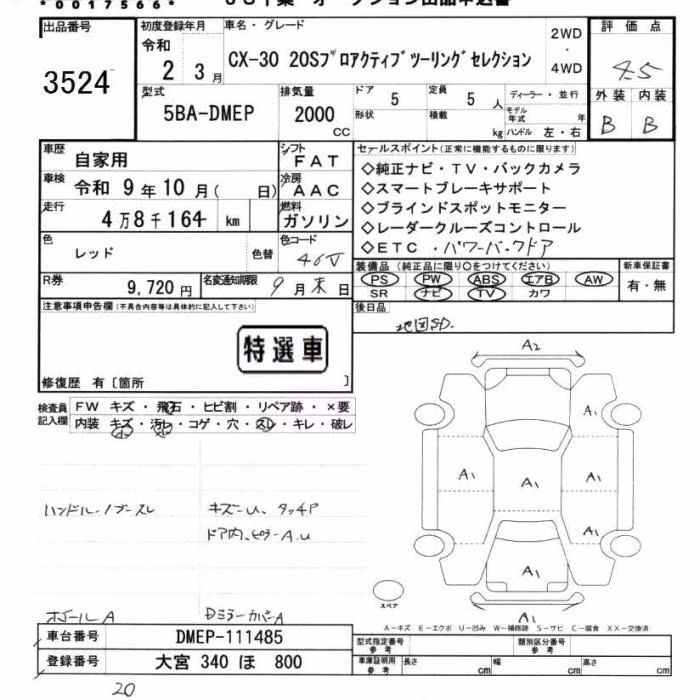 *0017566*
出品番号
3524
初度登録年月
令和
2 3月
車名・グレード
CX-30 20Sプロアクティブツーリングセレクション
2WD
・
4WD
評価点
4.5
外装 内装
B B
型式
5BA-DMEP
排気量
2000
cc
ドア
5
形状
定員
5 人
積載
kg
ディーラー・並行
モデル年式 年
ハンドル 左・右
車歴
自家用
シフト
FAT
車検
令和 9年10月( 日)
冷房
AAC
走行
4万8千164 km
燃料
ガソリン
セールスポイント(正常に機能するものに限ります)
◇純正ナビ・TV・バックカメラ
◇スマートブレーキサポート
◇ブラインドスポットモニター
◇レーダークルーズコントロール
◇ETC ・パワーバックドア
色
レッド
色替
色コード
46V
R券
9,720円
名変通知期限
9月末日
装備品(純正品に限り○をつけてください)
PS PW ABS エアB AW
SR ナビ TV カワ
新車保証書
有・無
後日品
地図SD.
注意事項申告欄(不具合内容等は具体的に記入して下さい)
特選車
修復歴 有〔箇所 〕
検査員
記入欄
FW キズ・飛石・ヒビ割・リペア跡・×要
内装 キズ・汚レ・コゲ・穴・スレ・キレ・破レ
小
ハンドル・ノブースレ
キズーU、タッチP
ドア内、ピラーA-U
ホイールA
DミラーカバーA
A2
A1
A1 A1 A1
A1
A1
スペア
A-キズ E-エクボ U-凹み W-補修跡 S-サビ C-腐食 XX-交換済
車台番号
DMEP-111485
登録番号
大宮 340 ほ 800
型式指定番号
参考
類別区分番号
参考
車庫証明用
参考
長さ cm 幅 cm 高さ cm
20